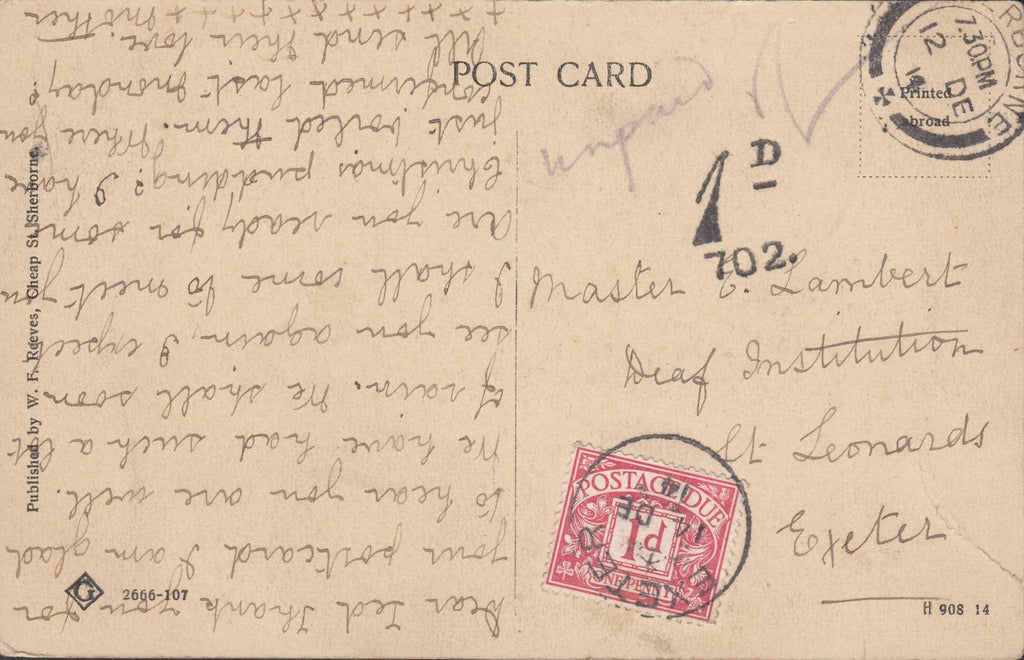 POST CARD
Printed
abroad
SHERBORNE
7.30PM
12 DE
14
unpaid
1D
702.
Master E. Lambert
Deaf Institution
St Leonards
Exeter
POSTAGE DUE
1d
ONE PENNY
EXETER
14 DE
14
Dear Ted Thank you for
your postcard I am glad
to hear you are well.
We have had such a lot
of rain. We shall soon
see you again, I expect
I shall come to meet you
are you ready for some
Christmas pudding? I have
just boiled them. Where you
confirmed last Monday?
All send their love.
Mother
+ x + x x x x x x + +
Published by W. F. Reeves, Cheap St. Sherborne.
G
2666-107
H 908 14